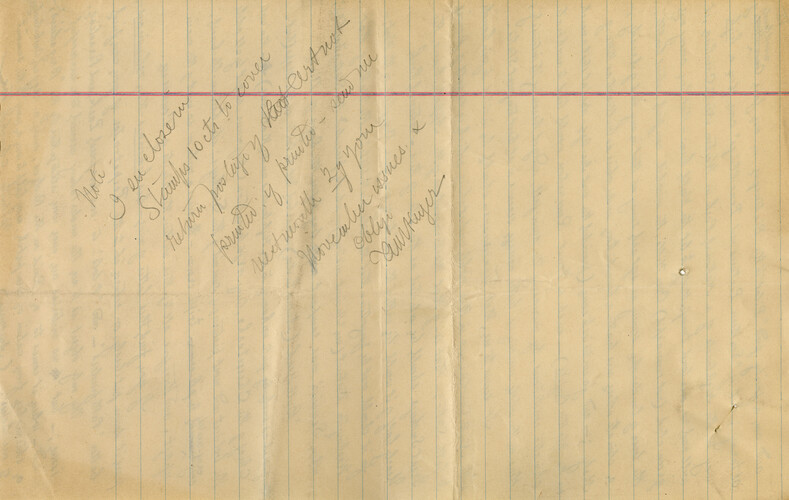 Note -
I en closein
Stamps 10 cts to cover
return postage if that Art not
printed if printed - send me
next month 2 of your
November issues. &
oblige